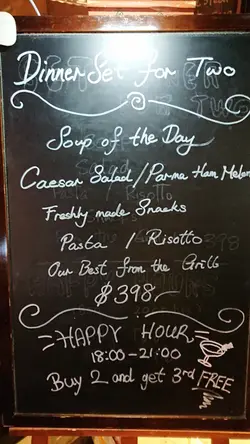 Dinner Set for Two
Soup of the Day
Caesar Salad / Parma Ham Melon
Freshly made Snacks
Pasta / Risotto
Our Best from the Grill
$398.-
HAPPY HOUR
18:00-21:00
Buy 2 and get 3rd FREE